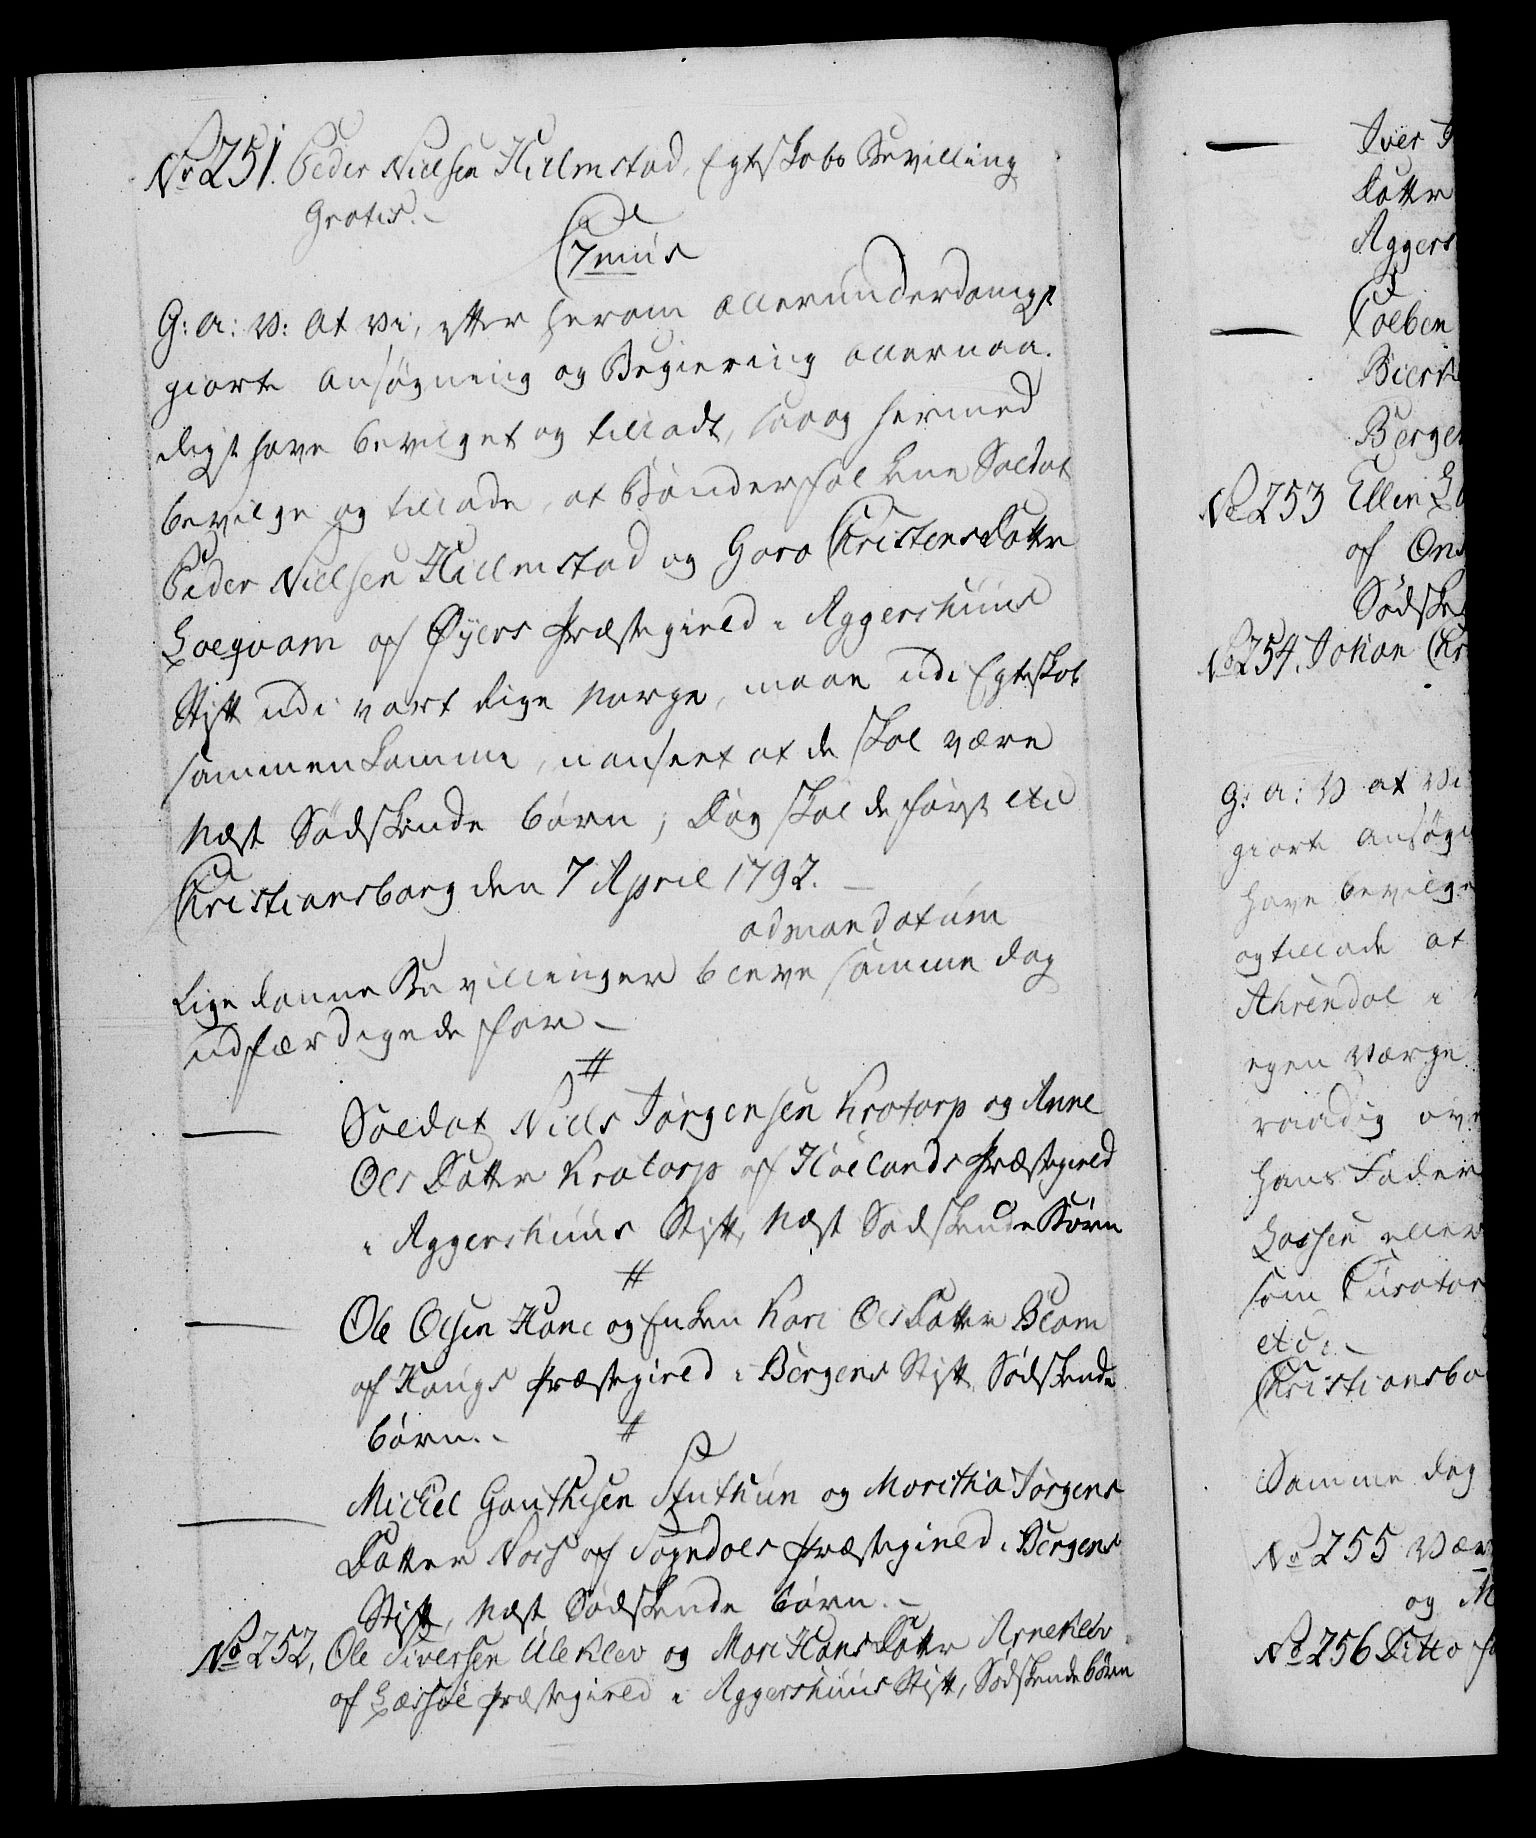 No 251. Peder Nielsen Hielmstad, Egteskabs Bevilling
Gratis.
C 7mus
G: A: V: at vi, efter herom allerunderdanigst
giorte Ansøgning og Begiering allernaa-
digst have bevilget og tilladt, saa og hermed
bevilge og tillade, at Bønderfolkene Soldat
Peder Nielsen Hielmstad og Goro Christensdatter
Loeqvam af Øyers Præstegield i Aggershuus
Stift udi vort Rige Norge, maae udi Egteskab
sammenkomme, uanseet at de skal være
Næst Sødskende børn; Dog skal de først etc
Christiansborg den 7 April 1792.
ad mandatum
Lige danne Bevillinger bleve samme dag
udfærdigede for
Soldat Niels Jørgensen Krotorp og Anne
Ols Datter Krotorp af Hølands Præstegield
i Aggershuus Stift, Næst Sødskende Børn
Ole Olsen Hane og Enken Kari Ols Datter Blom
af Haugs Præstegield i Bergens Stift Sødskende
børn.
Michel Gauthesen Stuthun og Moritha Jørgens
Datter Noes af Sogndals Præstegield i Bergens
Stift, Næst Sødskende børn.
No 252, Ole Siversen Uleklev og Mari Hans Datter Arneklev
af Læssøe Præstegield i Aggershuus Stift, Sødskendebørn
Iver
Datter
Aggers
Colben
Bergen
No 253 Ellen
af Ons
Sødske
No 254. Johan Chr
G: A: V at vi
giort Ansøgn
have bevilge
og tillade at
Ahrendal i
egen Værge
raadig ove
hans Fader
Lassen eller
som Curator
etc.
Christiansbo
Samme dag
No 255 Vær
og M
No 256 Ditto fo